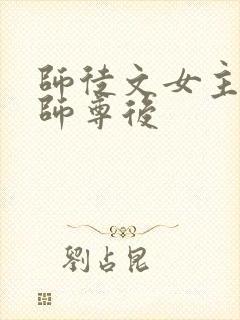 師徒文女主
師尊後
劉占昆